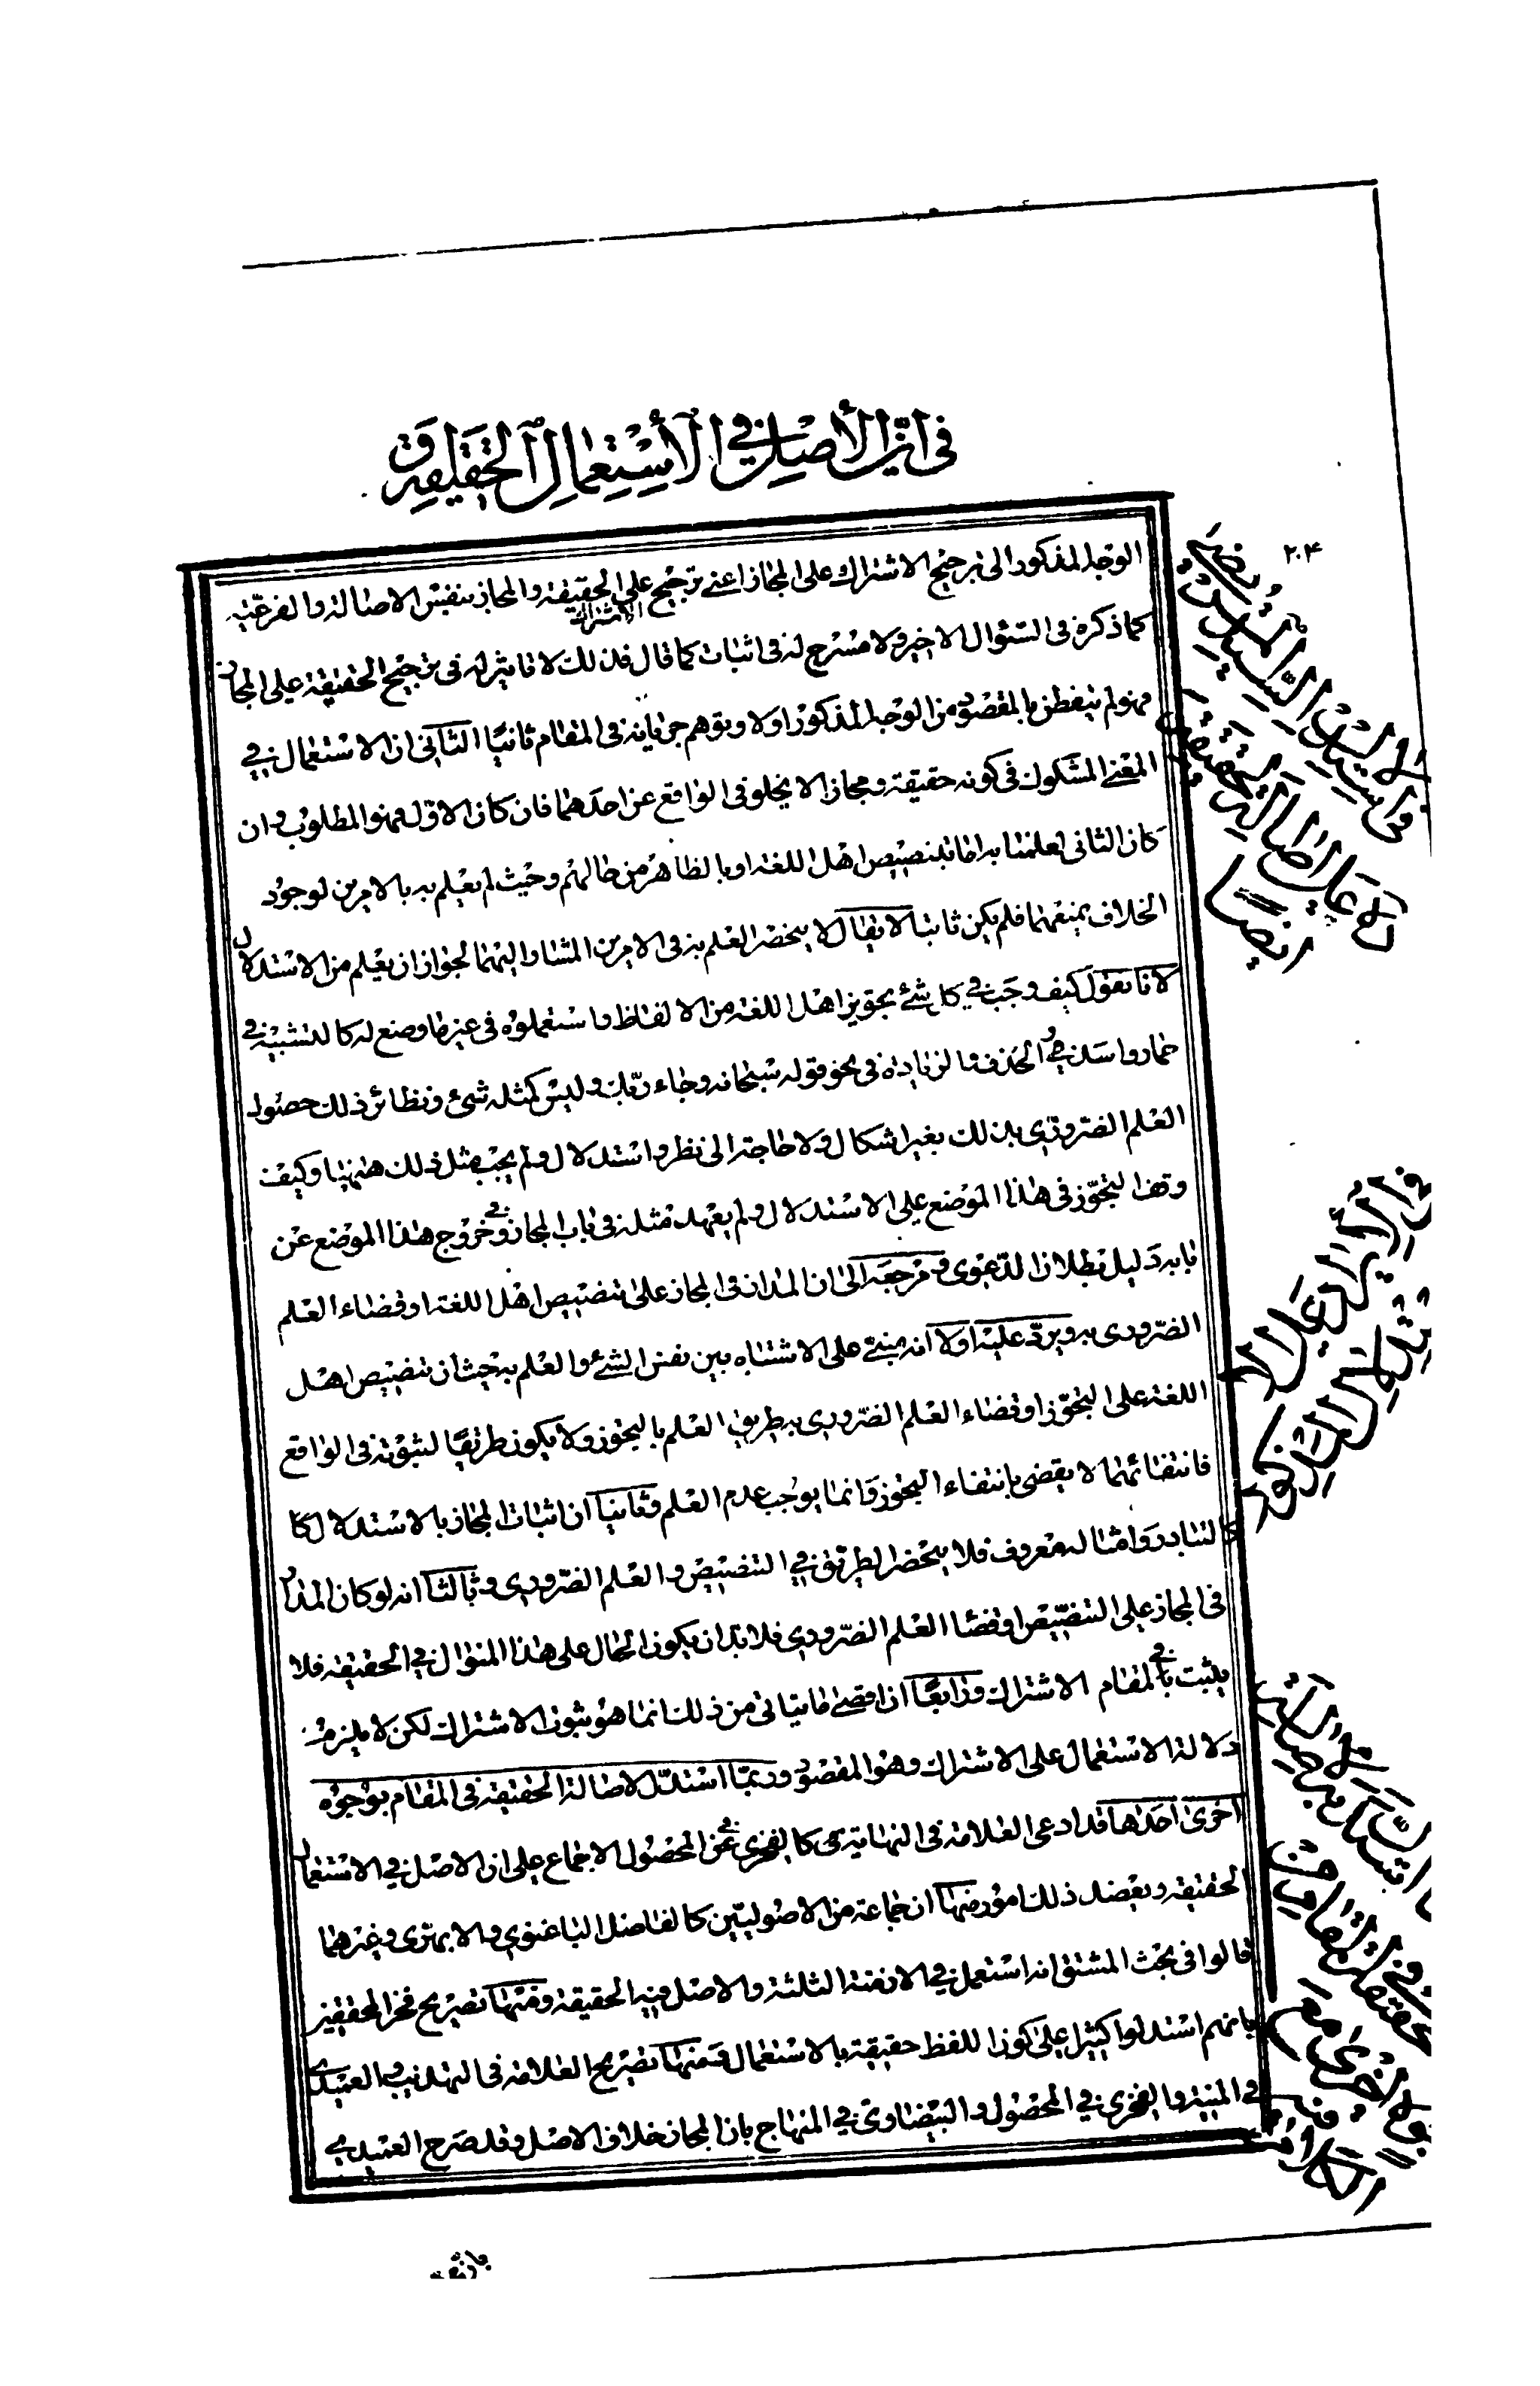 في ان الأصل في الأستعمال الحقيقة
٢٠۴
الوجه المذكور الى ترجيح الاشتراك على المجاز اعني ترجيح على الحقيقة والمجاز بنفس الاصالة والفرعية
الاشتراك
كما ذكره في السؤال الاخير ولا مسرح له في اثبات كما قال فذلك لا تاثير له في ترجيح الحقيقة على المجاز
فهو لم يتفطن بالمقصود من الوجه المذكور اولا وتوهم جريانه في المقام ثانيا الثاني ان الاستعمال في
المعنى المشكوك في كونه حقيقة ومجازا لا يخلو في الواقع عن احدهما فان كان الاول فهو المطلوب وان
كان الثاني لعلمنا به اما بتنصيص اهل اللغة او بالظاهر من حالهم وحيث لم يعلم به بالامرين لوجود
الخلاف بمنعهما فلم يكن ثابتا لا يقال لا ينحصر العلم به في الامرين المشار اليهما لجواز ان يعلم من الاستدلال
لانا نقول كيف وجب في كل شئ بتجويز اهل اللغة من الالفاظ واستعملوه في غير ما وضع له كالتشبيه في
حمار واسد في الحذف والزيادة في نحو قوله سبحانه وجاء ربك وليس كمثله شئ ونظائر ذلك حصول
العلم الضروري بذلك بغير اشكال ولا حاجة الى نظر واستدلال ولم يجب مثل ذلك ههنا وكيف
وقف التجوز في هذا الموضع على الاستدلال ولم يعهد مثله في باب المجاز وفي خروج هذا الموضع عن
بابه دليل بطلان الدعوى ومرجعه الى ان المدار في المجاز على تنصيص اهل اللغة او قضاء العلم
الضروري به ويرد عليه اولا انه مبني على الاشتباه بين نفس الشئ والعلم به حيث ان تنصيص اهل
اللغة على التجوز او قضاء العلم الضروري به طريق العلم بالتجوز ولا يكون طريقا لثبوته في الواقع
فانتفائهما لا يقضى بانتفاء التجوز وانما يوجب عدم العلم وثانيا ان اثبات المجاز بالاستدلال كا
كالتبادر وامثاله معروف فلا ينحصر الطريق في التنصيص والعلم الضروري وثالثا انه لو كان المدار
في المجاز على التنصيص او قضاء العلم الضروري فلا بد ان يكون الحال على هذا المنوال في الحقيقة فلا
يثبت في المقام الاشتراك ورابعا ان اقصى ما يتاتى من ذلك انما هو ثبوت الاشتراك لكن لا يلزم منه
دلالة الاستعمال على الاشتراك وهو المقصود وربما استدل لاصالة الحقيقة في المقام بوجوه
اخرى احدها قد ادعى العلامة في النهاية كالفخري في عن المحصول الاجماع على ان الاصل في الاستعمال
الحقيقة ويعضد ذلك امور منها ان جماعة من الاصوليين كالفاضل الباغنوي والابهري وغيرهما
قالوا في بحث المشتق انه استعمل في الازمنة الثلثة والاصل فيه الحقيقة ومنها تصريح فخر المحققين
بانهم استدلوا كثيرا على كون اللفظ حقيقة بالاستعمال ومنها تصريح العلامة في التهذيب والعميدي
في المنية والفخري في المحصول والبيضاوي في المنهاج بان المجاز خلاف الاصل وقد صرح العميدي